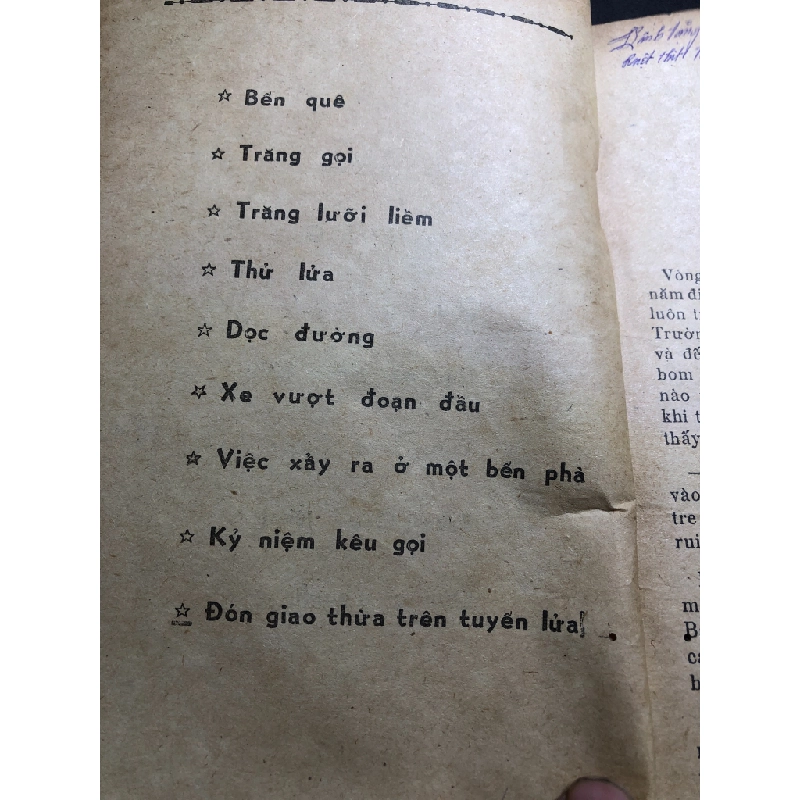 ☆ Bến quê
☆ Trăng gọi
☆ Trăng lưỡi liềm
☆ Thử lửa
☆ Dọc đường
☆ Xe vượt đoạn đầu
☆ Việc xẩy ra ở một bến phà
☆ Kỷ niệm kêu gọi
☆ Đón giao thừa trên tuyến lửa
Vòng
năm
luôn
và
bom
nào
khi
thấy
—
vào
tre